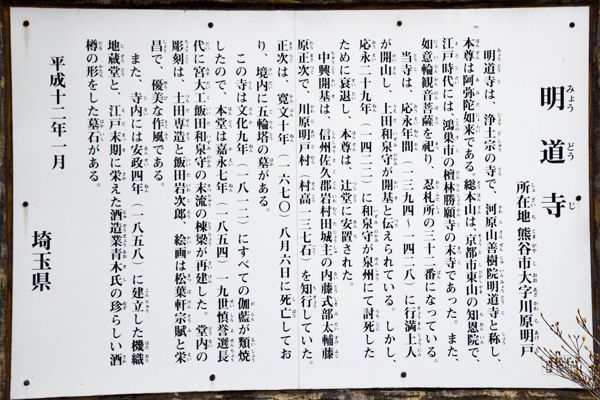 明道寺
所在地 熊谷市大字川原明戸
明道寺は、浄土宗の寺で、河原山善樹院明道寺と称し、
本尊は阿弥陀如来である。総本山は、京都市東山の知恩院で、
江戸時代には、鴻巣市の檀林勝願寺の末寺であった。また、
如意輪観音菩薩を祀り、忍札所の二十二番になっている。
当寺は、応永年間（一三九四〜一四二八）に行満上人
が開山し、上田和泉守が開基と伝えられている。しかし、
応永二十九年（一四二二）に和泉守が泉州にて討死した
ために衰退し、本尊は、辻堂に安置された。
中興開基は、信州佐久郡岩村田城主の内藤式部太輔藤
原正次で、川原明戸村（村高一三七石）を知行していた。
正次は、寛文十年（一六七〇）八月六日に死亡してお
り、境内に五輪塔の墓がある。
この寺は文化九年（一八一二）にすべての伽藍が類焼
したので、本堂は嘉永七年（一八五四）一九世慎誉選長
代に宮大工飯田和泉守の末流の棟梁が再建した。堂内の
彫刻は、土田専造と飯田岩次郎、絵画は松葉軒宗賦と栄
昌で、優美な作風である。
また、寺内には安政四年（一八五八）に建立した機織
地蔵堂と、江戸末期に栄えた酒造業青木氏の珍らしい酒
樽の形をした墓石がある。
平成十二年一月
埼玉県